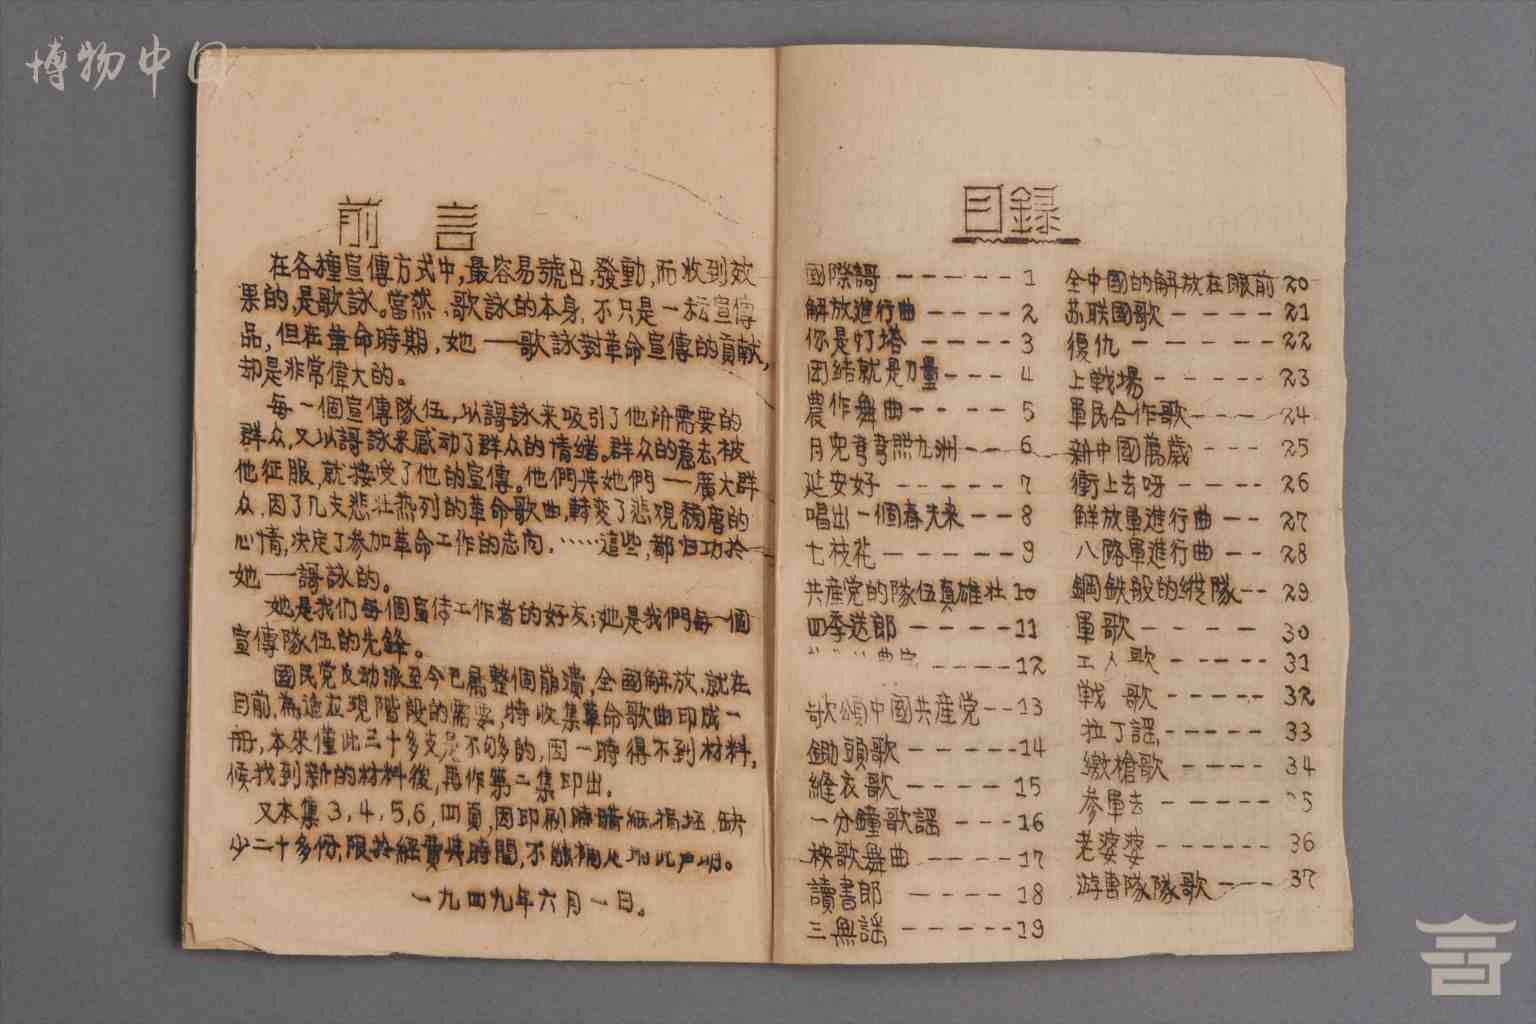 博物中国
前言
在各種宣傳方式中,最容易號召,發動,而收到效
果的,是歌詠。當然,歌詠的本身,不只是一种宣傳
品,但在革命時期,她——歌詠對革命宣傳的貢献,
却是非常偉大的。
每一個宣傳隊伍,以謌詠来吸引了他所需要的
群众,又以謌詠来感动了群众的情緒。群众的意志,被
他征服,就接受了他的宣傳。他們與她們——廣大群
众,因了几支悲壮热列的革命歌曲,轉变了悲观頹唐的
心情,决定了参加革命工作的志向,……這些,都归功於
她——謌詠的。
她是我们每個宣传工作者的好友;她是我們每一個
宣傳隊伍的先鋒。
國民党反动派至今已屬整個崩潰,全國解放,就在
目前,為适应現階段的需要,特收集革命歌曲印成一
册,本来僅此三十多支是不够的,因一時得不到材料,
候找到新的材料後,再作第二集印出。
又本集3,4,5,6,四頁,因印刷時蜡紙損坯,缺
少二十多份,限於經費與時間,不能補足,附此声明。
一九四九年六月一日。
目錄
國際謌------1
解放進行曲----2
你是灯塔----3
团結就是力量---4
農作舞曲----5
月兒弯弯照九洲--6
延安好-----7
唱出一個春天来--8
七枝花-----9
共産党的隊伍真雄壮10
四季送郎----11
----12
歌頌中國共産党--13
鋤頭歌-----14
縫衣歌-----15
一分鐘歌謡---16
秧歌舞曲----17
讀書郎-----18
三無謡-----19
全中國的解放在眼前20
苏联國歌----21
復仇------22
上戰場-----23
軍民合作歌---24
新中國萬歲---25
衝上去呀----26
解放軍進行曲--27
八路軍進行曲--28
鋼鉄般的縱隊--29
軍歌-----30
工人歌-----31
戰歌-----32
拉丁謡-----33
繳槍歌----34
参軍去------35
老婆婆-----36
游击隊隊歌---37